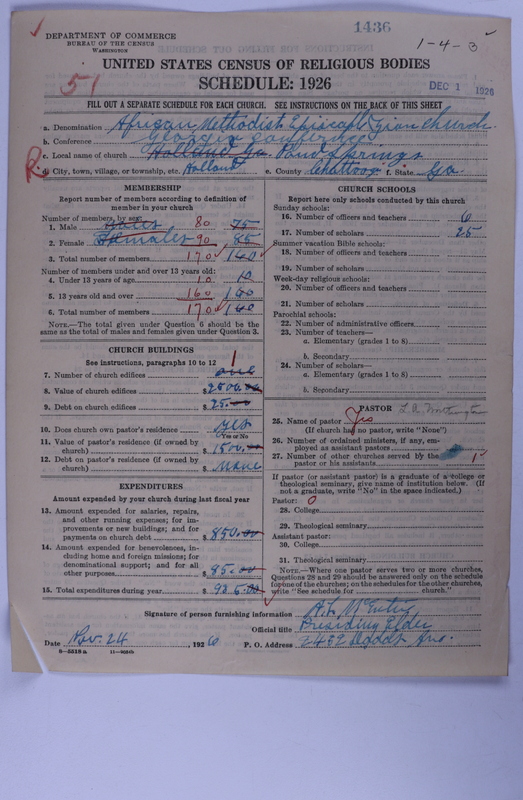 1436
1-4-3
DEPARTMENT OF COMMERCE
BUREAU OF THE CENSUS
WASHINGTON
51
UNITED STATES CENSUS OF RELIGIOUS BODIES
SCHEDULE: 1926
DEC 1 1926
FILL OUT A SEPARATE SCHEDULE FOR EACH CHURCH. SEE INSTRUCTIONS ON THE BACK OF THIS SHEET
a. Denomination African Methodist Episcopal Zion Church
b. Conference Georgia Conference
c. Local name of church Holland Ga. Pond Springs
R.
d. City, town, village, or township, etc. Holland e. County Chattooga f. State Ga
MEMBERSHIP
Report number of members according to definition of
member in your church
Number of members, by sex:
1. Male Males 80 75
2. Female Females 90 85
3. Total number of members 170 160
Number of members under and over 13 years old:
4. Under 13 years of age 10 10
5. 13 years old and over 160 150
6. Total number of members 170 160
NOTE.—The total given under Question 6 should be the
same as the total of males and females given under Question 3.
CHURCH BUILDINGS
See instructions, paragraphs 10 to 12
1
7. Number of church edifices one
8. Value of church edifices $2500.00
9. Debt on church edifices $25.00
10. Does church own pastor's residence yes
Yes or No
11. Value of pastor's residence (if owned by
church) $1500.00
12. Debt on pastor's residence (if owned by
church) $None
EXPENDITURES
Amount expended by your church during last fiscal year
13. Amount expended for salaries, repairs,
and other running expenses; for im-
provements or new buildings; and for
payments on church debt $850.00
14. Amount expended for benevolences, in-
cluding home and foreign missions; for
denominational support; and for all
other purposes $85.00
15. Total expenditures during year $936.00
CHURCH SCHOOLS
Report here only schools conducted by this church
Sunday schools:
16. Number of officers and teachers 6
17. Number of scholars 25
Summer vacation Bible schools:
18. Number of officers and teachers
19. Number of scholars
Week-day religious schools:
20. Number of officers and teachers
21. Number of scholars
Parochial schools:
22. Number of administrative officers
23. Number of teachers—
a. Elementary (grades 1 to 8)
b. Secondary
24. Number of scholars—
a. Elementary (grades 1 to 8)
b. Secondary
PASTOR
25. Name of pastor
(If church has no pastor, write "None")
26. Number of ordained ministers, if any, em-
ployed as assistant pastors
27. Number of other churches served by the
pastor or his assistants 1
If pastor (or assistant pastor) is a graduate of a college or
theological seminary, give name of institution below. (If
not a graduate, write "No" in the space indicated.)
Pastor: 0
28. College
29. Theological seminary
Assistant pastor:
30. College
31. Theological seminary
NOTE.—Where one pastor serves two or more churches,
Questions 28 and 29 should be answered only on the schedule
for one of the churches; on the schedules for the other churches,
write "See schedule for church."
Signature of person furnishing information
Official title Presiding Elder
Date Nov. 24, 1926 P. O. Address
8—5518 a